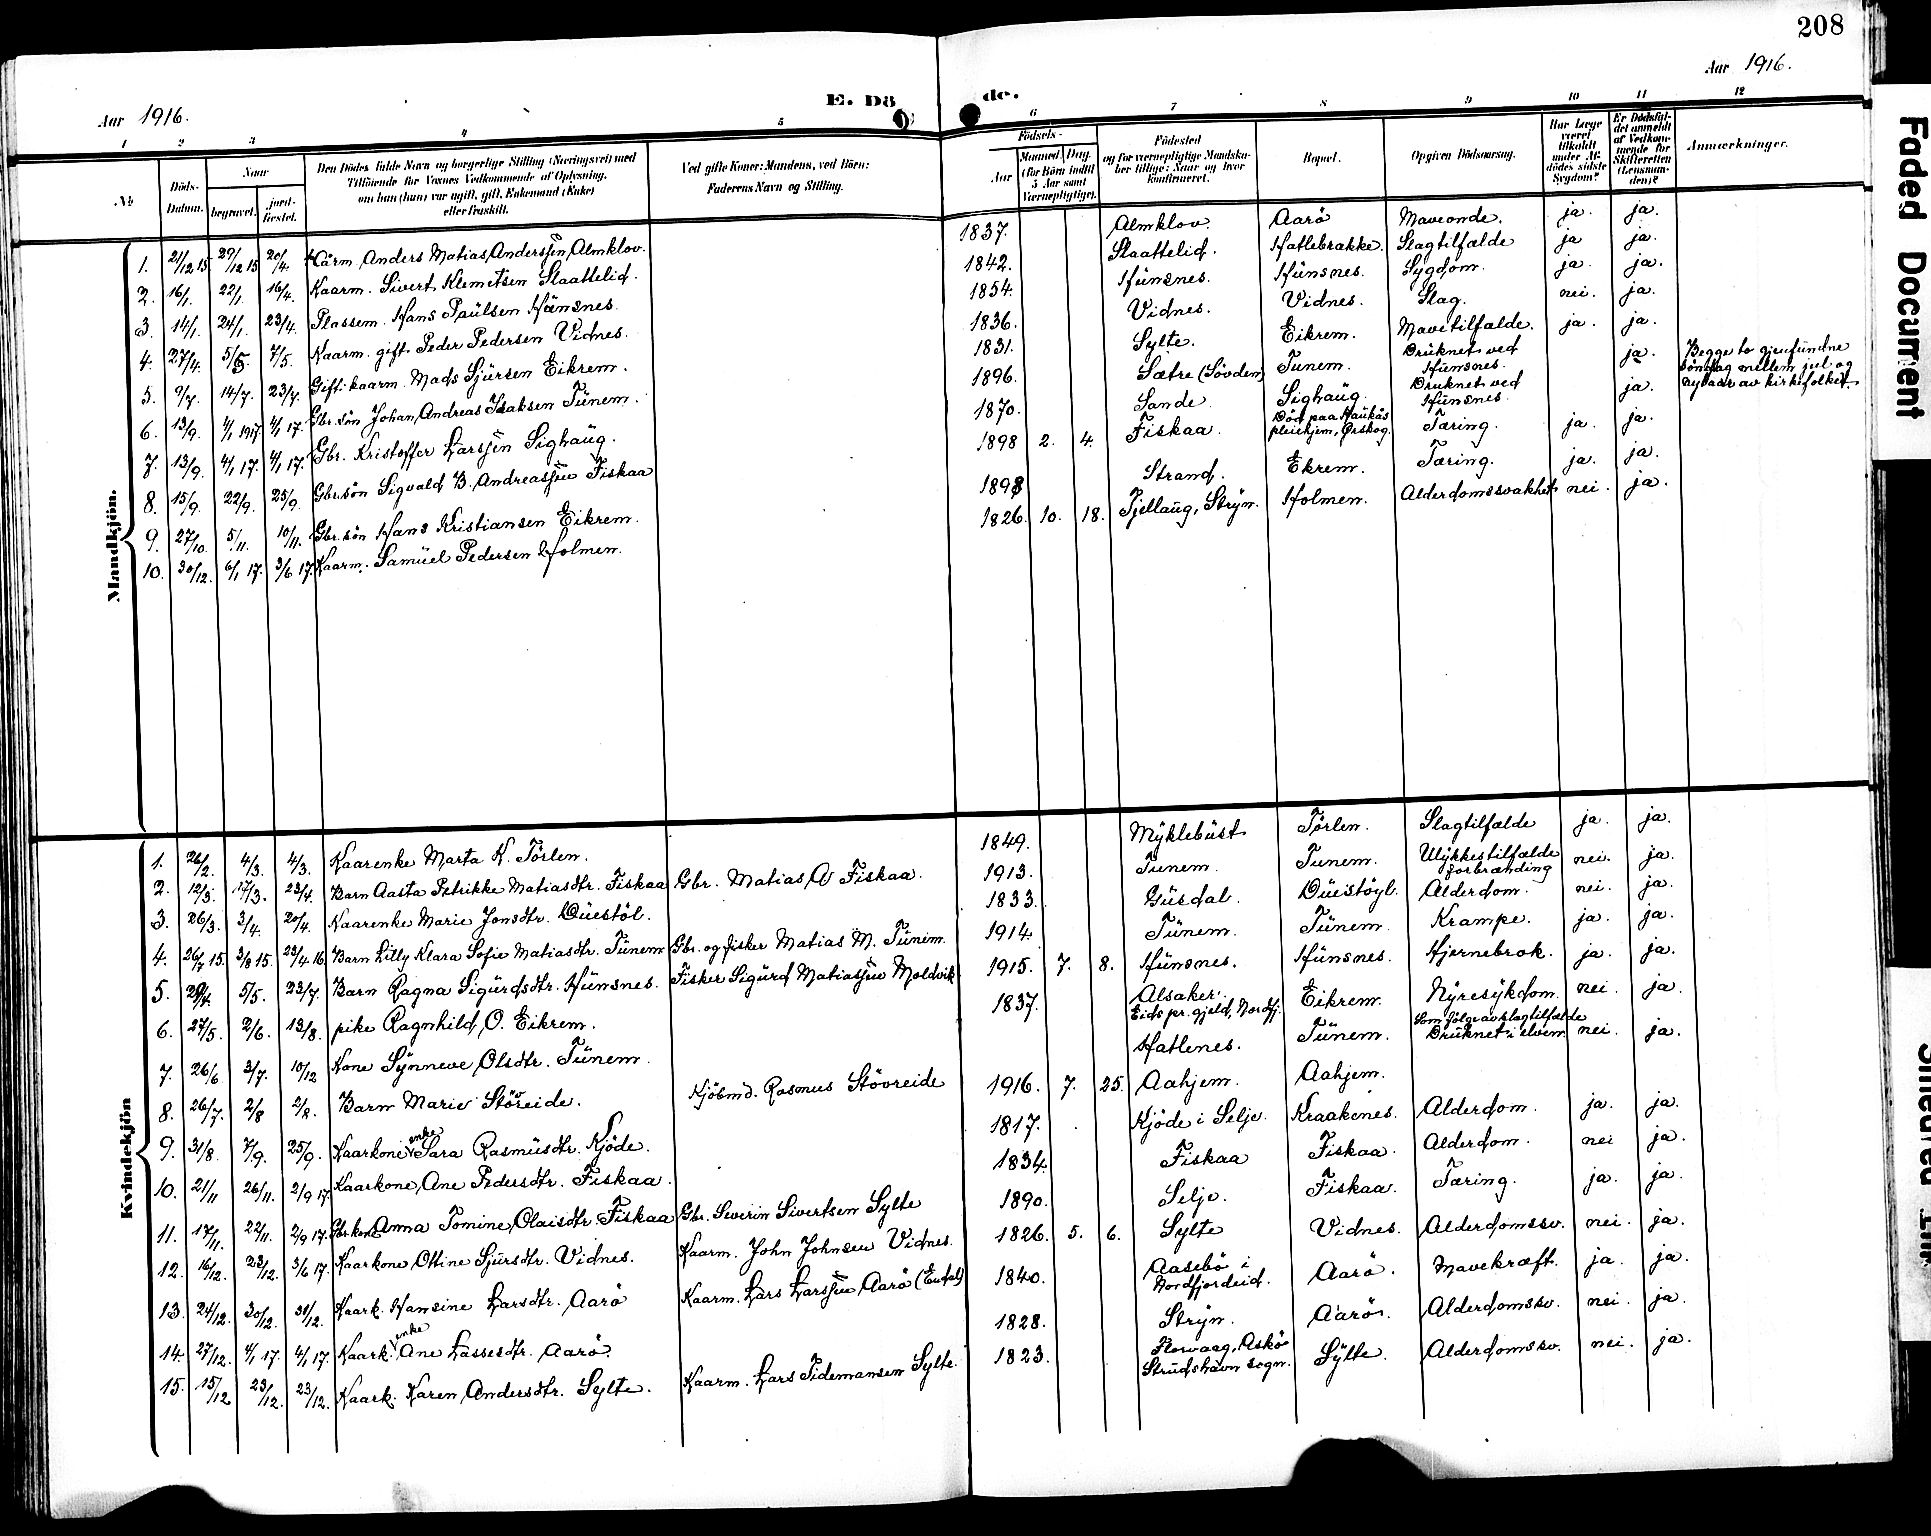 208
Aar 1916.
Aar 1916.
E. Dö de.
1 2 3 4 5 6 7 8 9 10 11 12
No
Döds-Datum.
Naar
begravet.
jord-fæstet.
Den Dödes fulde Navn og borgerlige Stilling (Næringsvei) med
Tilföiende for Voxnes Vedkommende af Oplysning,
om han (hun) var ugift, gift, Enkemand (Enke)
eller fraskilt.
Ved gifte Koner: Mandens, ved Börn:
Faderens Navn og Stilling.
Födsels-
Aar
Maaned. Dag.
(for Börn indtil
5 Aar samt
Værnepligtige).
Födested
og for værnepligtige Mandska-
ber tillige: Naar og hvor
konfirmeret.
Bopæl.
Opgiven Dödsaarsag.
Har Læge
været
tilkaldt
under Af-
dödes sidste
Sygdom?
Er Dödsfal-
det anmeldt
af Vedkom-
mende for
Skifteretten
(Lensman-
den)?
Anmærkninger.
Mandkjön.
1. 21/12 15 29/12 15 20/4. Kårm. Anders Matias Anderssen Almklov. 1837. Almklov. Aarö Maveonde. ja. ja.
2. 16/1. 22/1. 16/4. Kaarm. Sivert Klemetsen Slaattelid. 1842. Slaattelid. Hatlebrække. Slagtilfælde ja ja.
3. 14/1. 24/1. 23/4. Plassem. Hans Paulsen Hunsnes. 1854. Hunsnes. Hunsnes. Sygdom. ja. ja.
4. 27/4. 5/5. 7/5. Kaarm. gift Peder Pedersen Vidnes. 1836. Vidnes. Vidnes. Slag. nei. ja.
5. 9/7. 14/7. 23/7. Gift. kaarm. Mads Sjursen Eikrem. 1831. Sylte. Eikrem. Mavetilfælde. ja. ja.
6. 13/9. 4/1 1917. 4/1 17. Gbr. sön Johan Andreas Isaksen Tunem. 1896. Sætre (Sövden) Tunem. Druknet ved Hunsnes. ja. Begge to gjenfundne
söndag mellem jul og
nyaar av kirkefolket.
7. 13/9. 4/1 17. 4/1 17. Gbr. Kristoffer Larssen Sighaug. 1870. Sande. Sighaug. Druknet ved Hunsnes. ja.
8. 15/9. 22/9. 25/9. Gbr. sön Sigvald B. Andreassen Fiskaa 1898 2. 4. Fiskaa. Död paa Haukås pleiehjem, Ørskog. Tæring. ja. ja.
9. 27/10. 5/11. 10/11. Gbr. sön Hans Kristiansen Eikrem. 1898 Strand. Ekrem. Tæring. ja. ja.
10. 30/12. 6/1 17. 3/6 17. Kaarm. Samuel Pedersen Holmen. 1826. 10. 18. Tjellaug, Stryn. Holmen. Alderdomssvakhet nei. ja.
Kvindekjön
1. 26/2. 4/3. 4/3. Kaarenke Marta K. Tørlen. 1849. Myklebust Tørlen. Slagtilfælde ja. ja.
2. 12/3. 17/3. 23/4. Barn Aasta Petrikke Matiasdtr. Fiskaa Gbr. Matias A Fiskaa. 1913. Tunem. Tunem. Ulykkestilfælde forbrænding nei. ja.
3. 26/3. 3/4. 20/4. Kaarenke Marie Jonsdtr. Duestöl. 1833. Gusdal. Duestöyl. Alderdom. nei. ja.
4. 26/7 15. 3/8 15. 23/4 16. Barn Lilly Klara Sofie Matiasdtr. Tunem Gbr. og fisker Matias M. Tunem. 1914. Tunem. Tunem. Krampe. ja. ja.
5. 29/4. 5/5. 23/7. Barn Ragna Sigurdsdtr. Hunsnes. Fisker Sigurd Matiassen Moldvik 1915. 7. 8. Hunsnes. Hunsnes. Hjernebrok. ja. ja.
6. 27/5. 2/6. 13/8. pike Ragnhild O. Eikrem. 1837. Alsaker. Eids pr. gjeld, Nordfj. Eikrem. Nyresykdom. nei. ja.
7. 26/6 3/7. 10/12 Kone Synneve Olsdtr. Tunem. Hatlenes. Tunem. Som fölge av slagtilfælde Druknet i elven. nei. ja.
8. 26/7. 2/8 2/8. Barn Marie Stöveide. Kjöbmd. Rasmus Stövreide 1916. 7. 25. Aahjem. Aahjem.
9. 31/8. 7/9. 25/9. Kaarkone enke Sara Rasmusdtr. Kjöde. 1817. Kjöde i Selje. Kraakenes. Alderdom. ja. ja.
10. 21/11 26/11. 2/9 17. Kaarkone Ane Pedersdtr. Fiskaa. 1834. Fiskaa Fiskaa. Alderdom. nei ja.
11. 17/11. 22/11. 2/9 17. Gbr. kone Anna Tomine Olaisdtr. Fiskaa Gbr. Severin Sivertsen Sylte 1890. Selje. Fiskaa. Tæring. ja. ja.
12. 16/12. 23/12. 3/6 17. Kaarkone Ottine Sjursdtr. Vidnes. Kaarm. John Johnsen Vidnes. 1826. 5. 6. Sylte Vidnes. Alderdomssv. nei. ja.
13. 24/12. 30/12. 31/12. Kaark. Hansine Larsdtr. Aarö Kaarm. Lars Larssen Aarö 1840. Aasebö i Nordfjordeid. Aarö. Mavekræft. ja. ja.
14. 27/12. 4/1 17. 4/1 17. Kaark. enke Ane Lassesdtr. Aarö. 1828. Stryn. Aarö. Alderdomssv. nei. ja.
15. 15/12 23/12. 23/12. Kaark. Karen Andersdtr. Sylte. Kaarm. Lars Tidemansen Sylte. 1823. Florvaag, Askö Strudshavn sogn. Sylte. Alderdomssv. nei. ja.
Faded Document